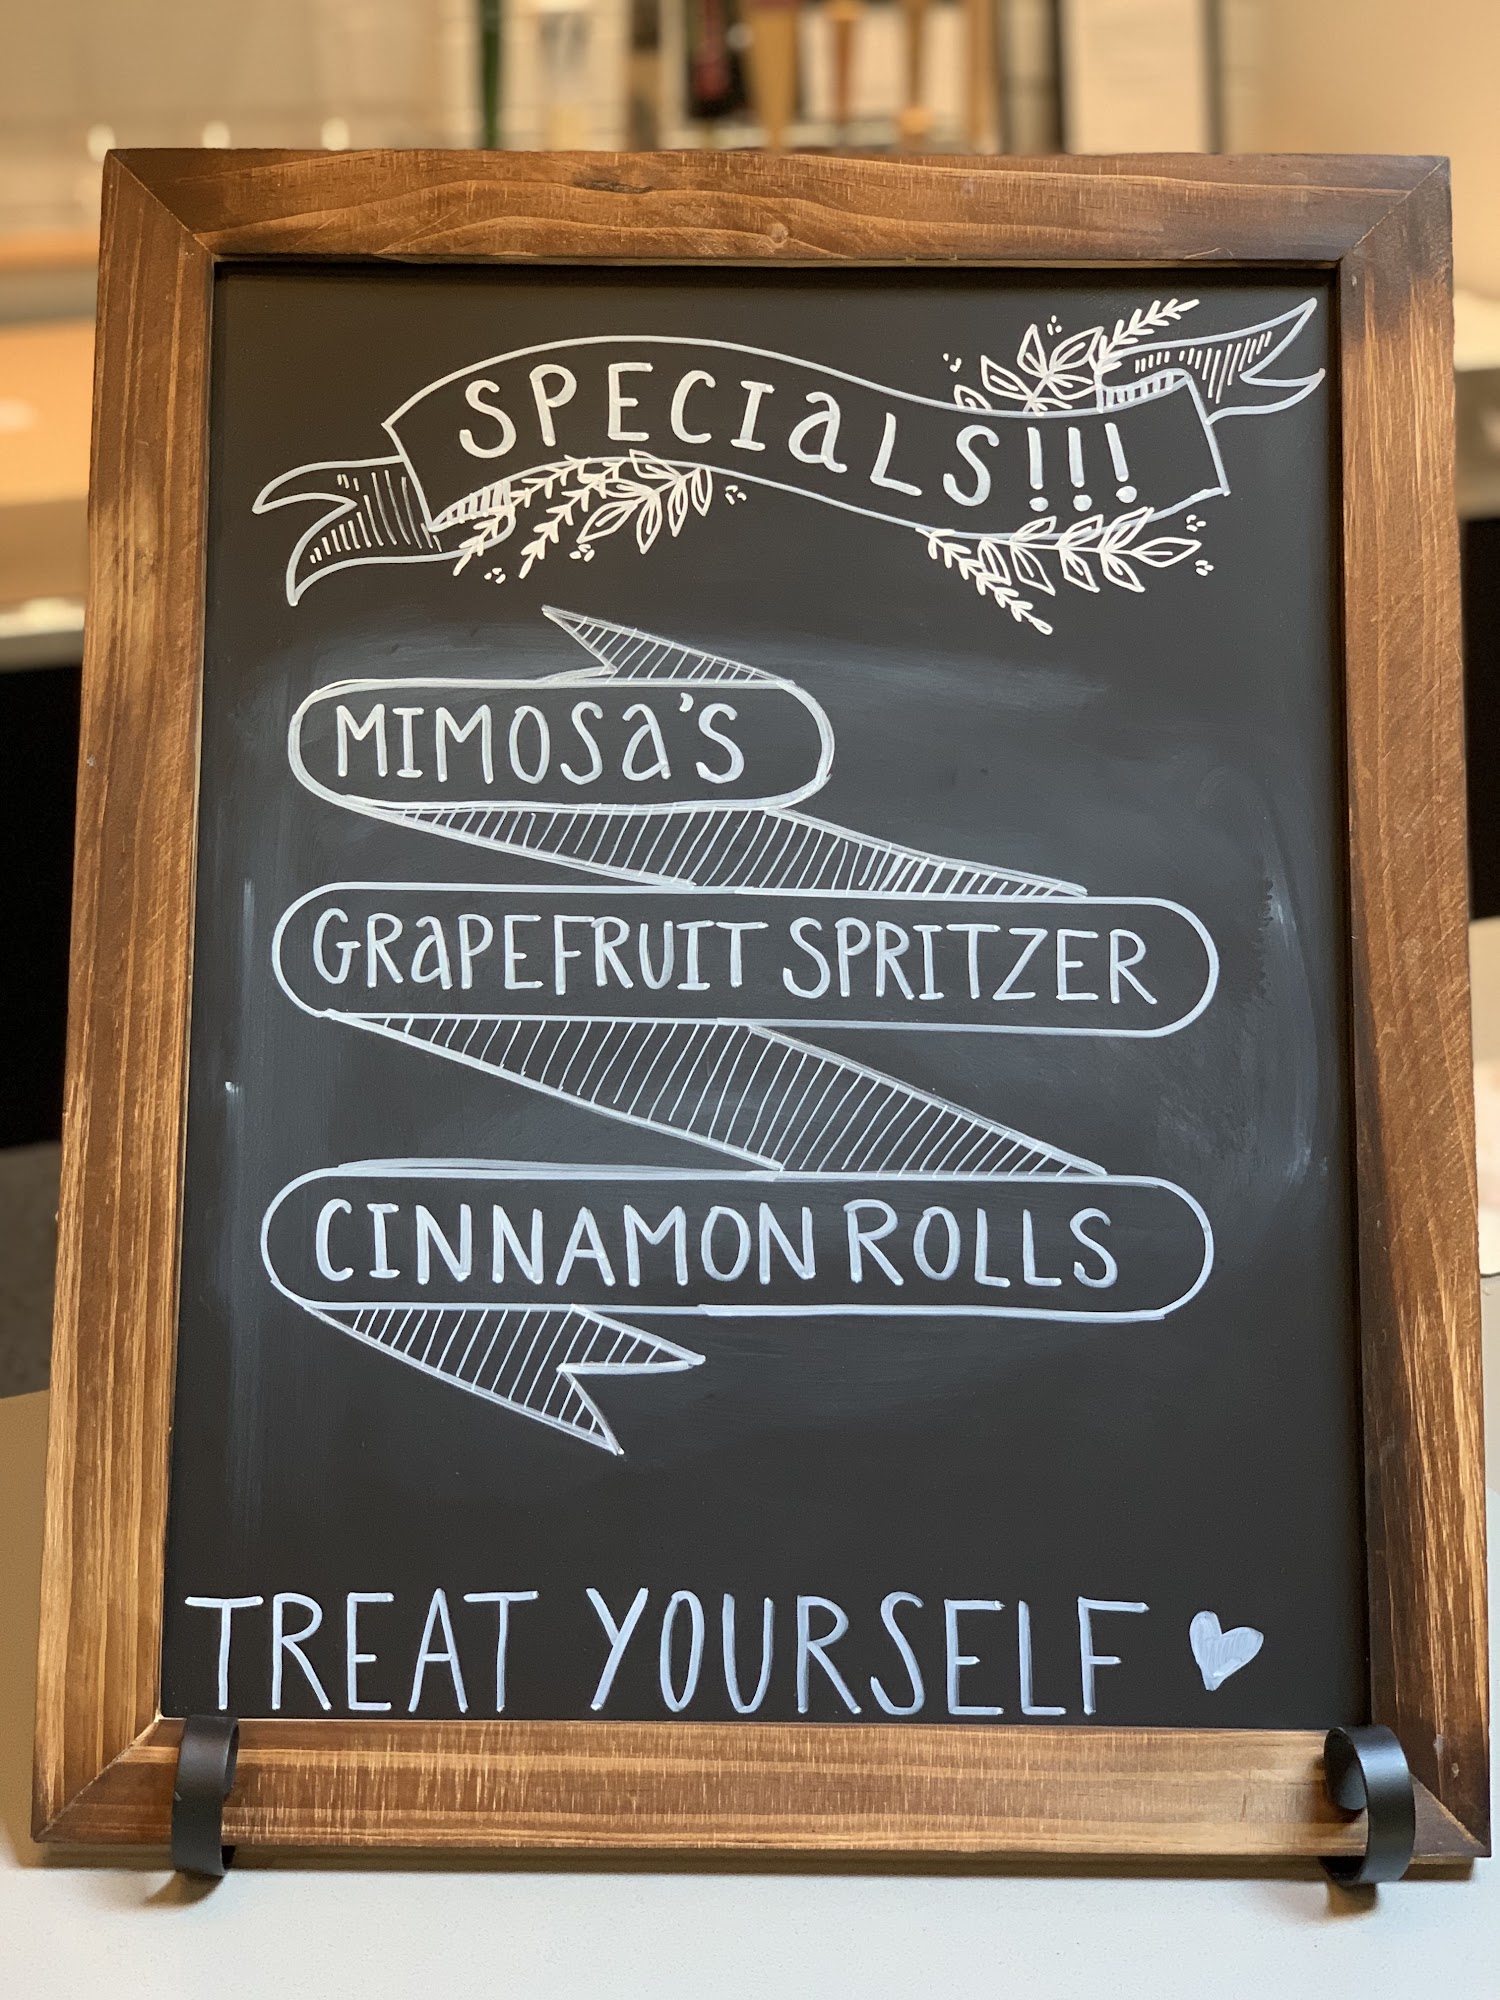 SPECIaLS!!!
MIMOSa'S
GRaPEFRUIT SPRITZER
CINNAMON ROLLS
TREAT YOURSELF